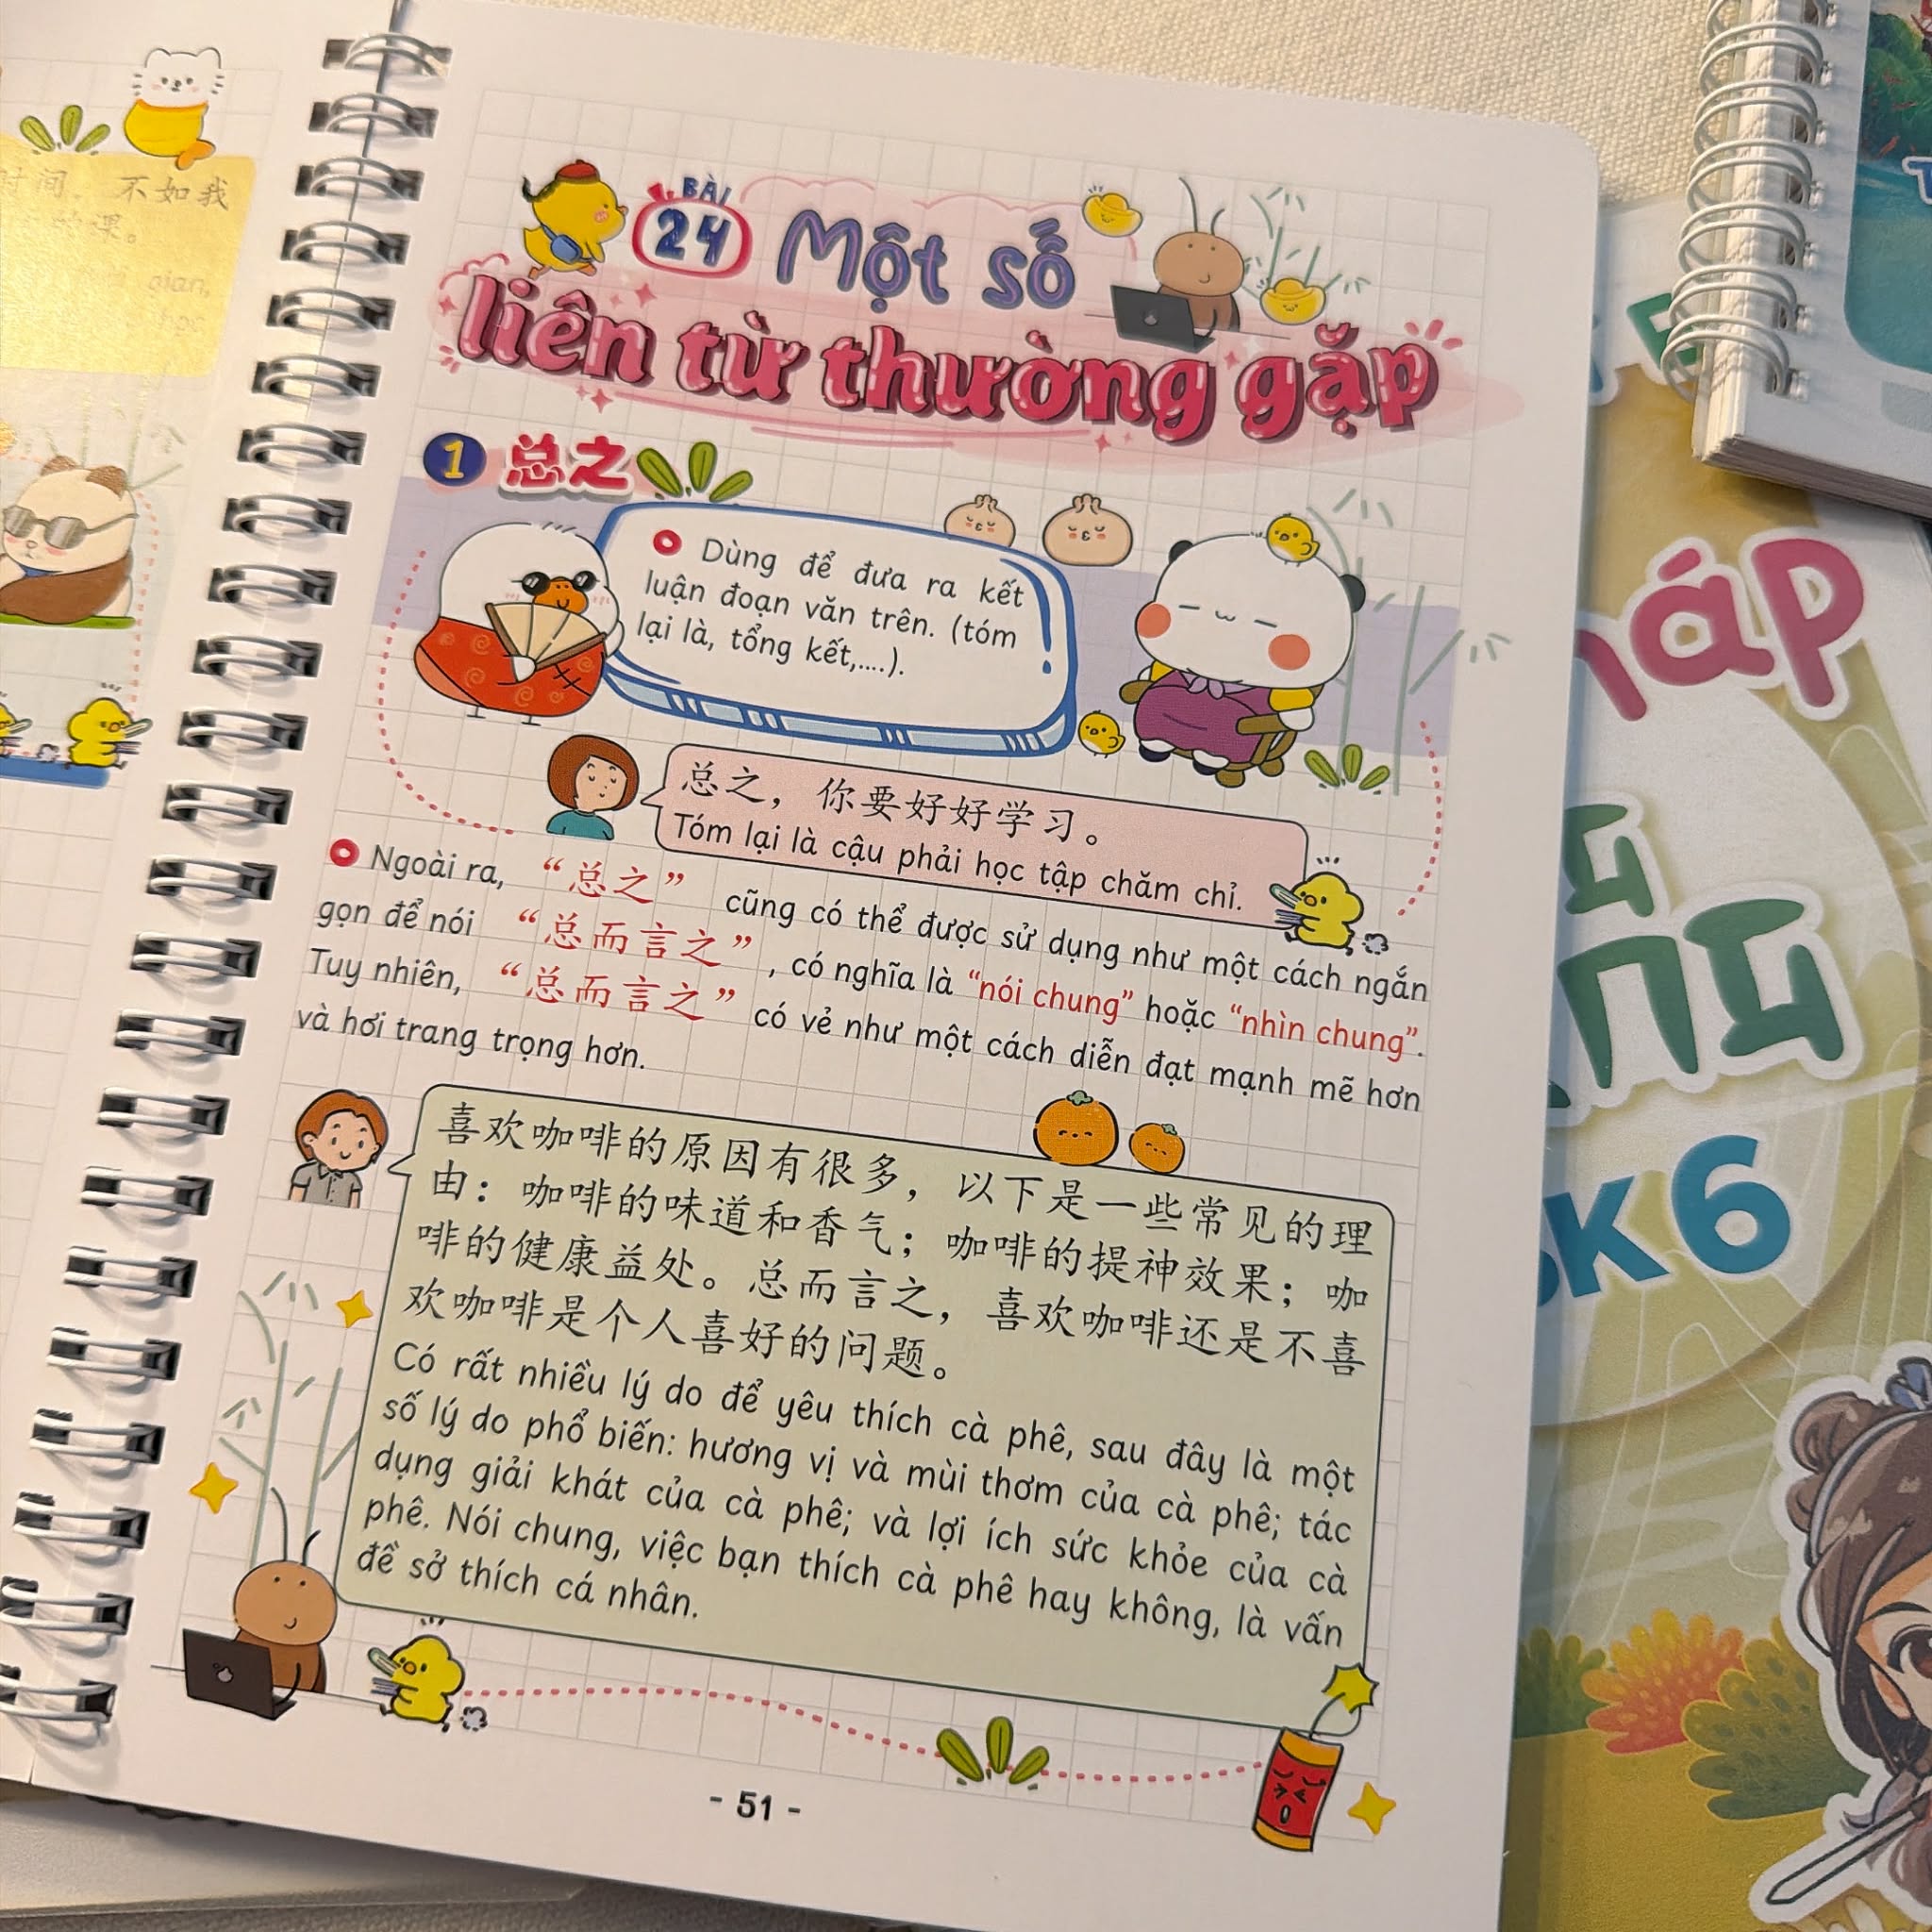 时间，不如我
的课。
gian,
học
BÀI
24 Một số
liên từ thường gặp
1 总之
Dùng để đưa ra kết
luận đoạn văn trên. (tóm
lại là, tổng kết,....).
总之，你要好好学习。
Tóm lại là cậu phải học tập chăm chỉ.
Ngoài ra, “总之” cũng có thể được sử dụng như một cách ngắn
gọn để nói “总而言之”, có nghĩa là “nói chung” hoặc “nhìn chung”.
Tuy nhiên, “总而言之” có vẻ như một cách diễn đạt mạnh mẽ hơn
và hơi trang trọng hơn.
喜欢咖啡的原因有很多，以下是一些常见的理
由：咖啡的味道和香气；咖啡的提神效果；咖
啡的健康益处。总而言之，喜欢咖啡还是不喜
欢咖啡是个人喜好的问题。
Có rất nhiều lý do để yêu thích cà phê, sau đây là một
số lý do phổ biến: hương vị và mùi thơm của cà phê; tác
dụng giải khát của cà phê; và lợi ích sức khỏe của cà
phê. Nói chung, việc bạn thích cà phê hay không, là vấn
đề sở thích cá nhân.
- 51 -
áp
K 6